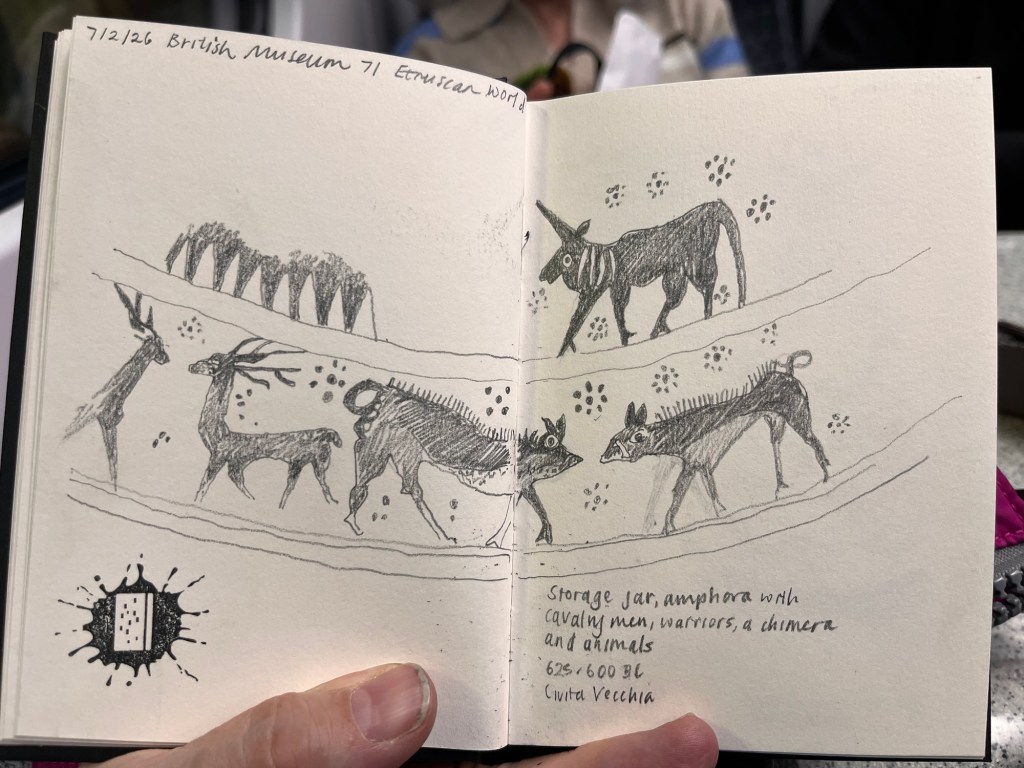 7/2/26 British Museum 71 Etruscan World
Storage jar, amphora with
cavalry men, warriors, a chimera
and animals
625-600 BC
Civita Vecchia